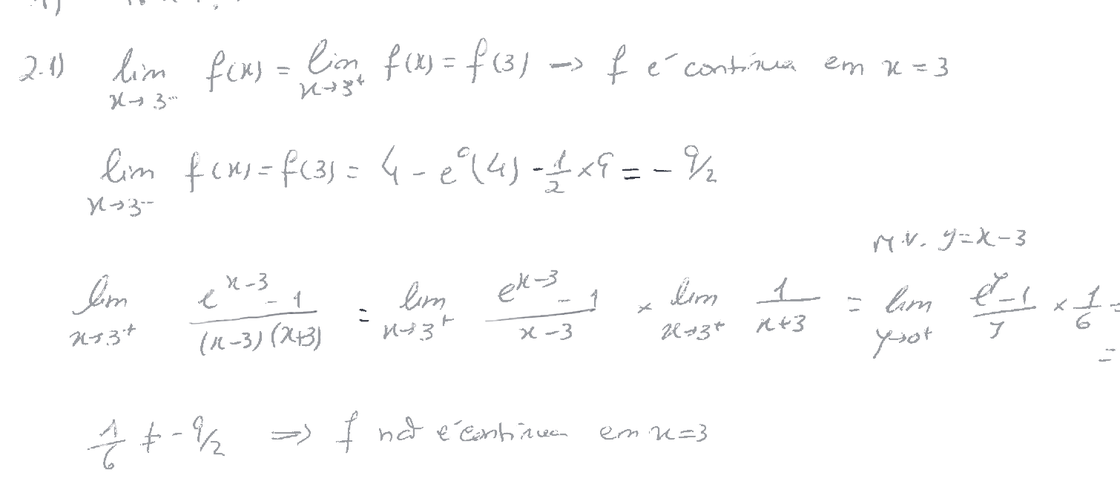 2.1) lim x→3⁻ f(x) = lim x→3⁺ f(x) = f(3) → f é contínua em x = 3
lim x→3⁻ f(x) = f(3) = 4 - e⁰(4) - 1/2 × 9 = - 9/2
M.V. y = x - 3
lim x→3⁺ (e^(x-3) - 1)/((x-3)(x+3)) = lim x→3⁺ (e^(x-3) - 1)/(x-3) × lim x→3⁺ 1/(x+3) = lim y→0⁺ (e^y - 1)/y × 1/6 =
=
1/6 ≠ - 9/2 ⇒ f não é contínua em x = 3